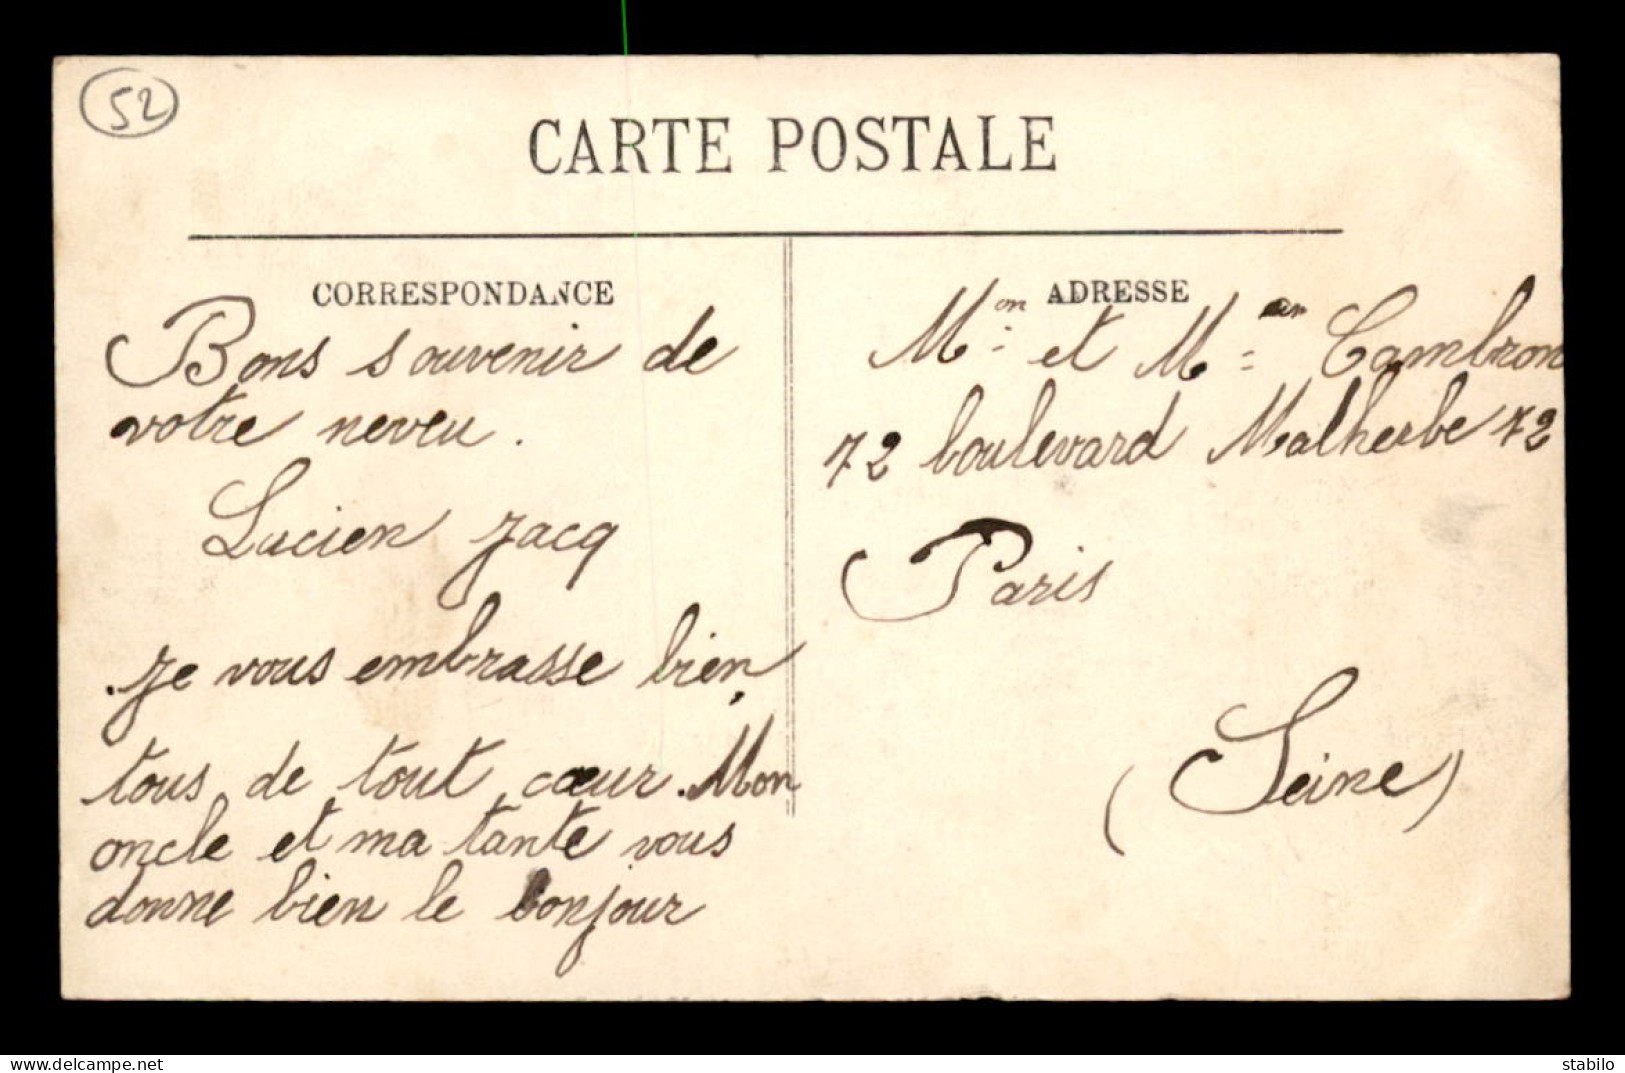 52
CARTE POSTALE
CORRESPONDANCE
Bons souvenir de
votre neveu.
Lucien Jacq
Je vous embrasse bien
tous de tout cœur. Mon
oncle et ma tante vous
donne bien le bonjour
ADRESSE
Mon et M Cambron
72 boulevard Malherbe 72
Paris
(Seine)
www.delcampe.net
stabilo